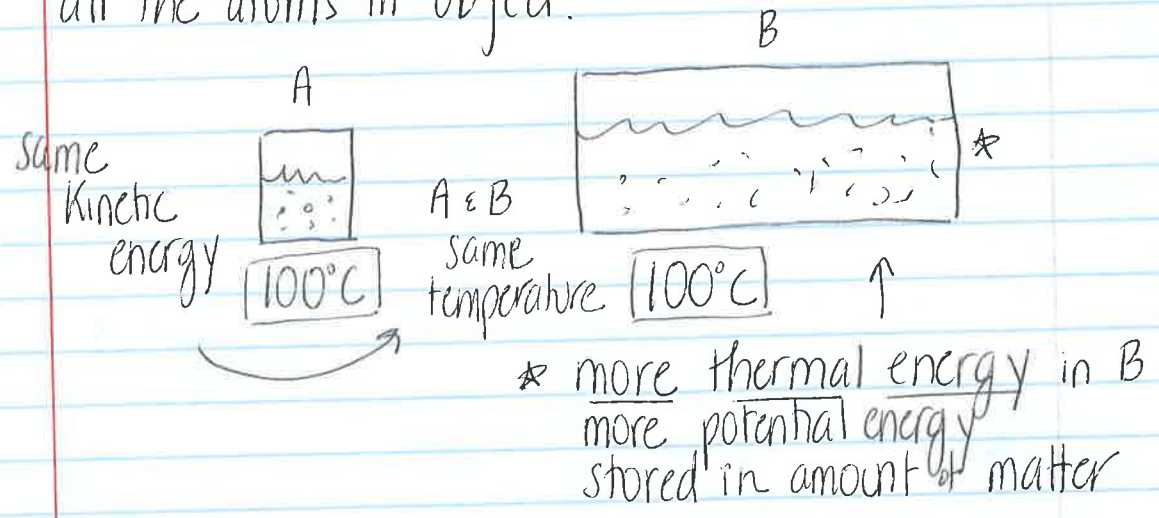 all the atoms in object.
A
B
same
Kinetic
energy
100°C
A & B
same
temperature
100°C
* more thermal energy in B
more potential energy
stored in amount of matter